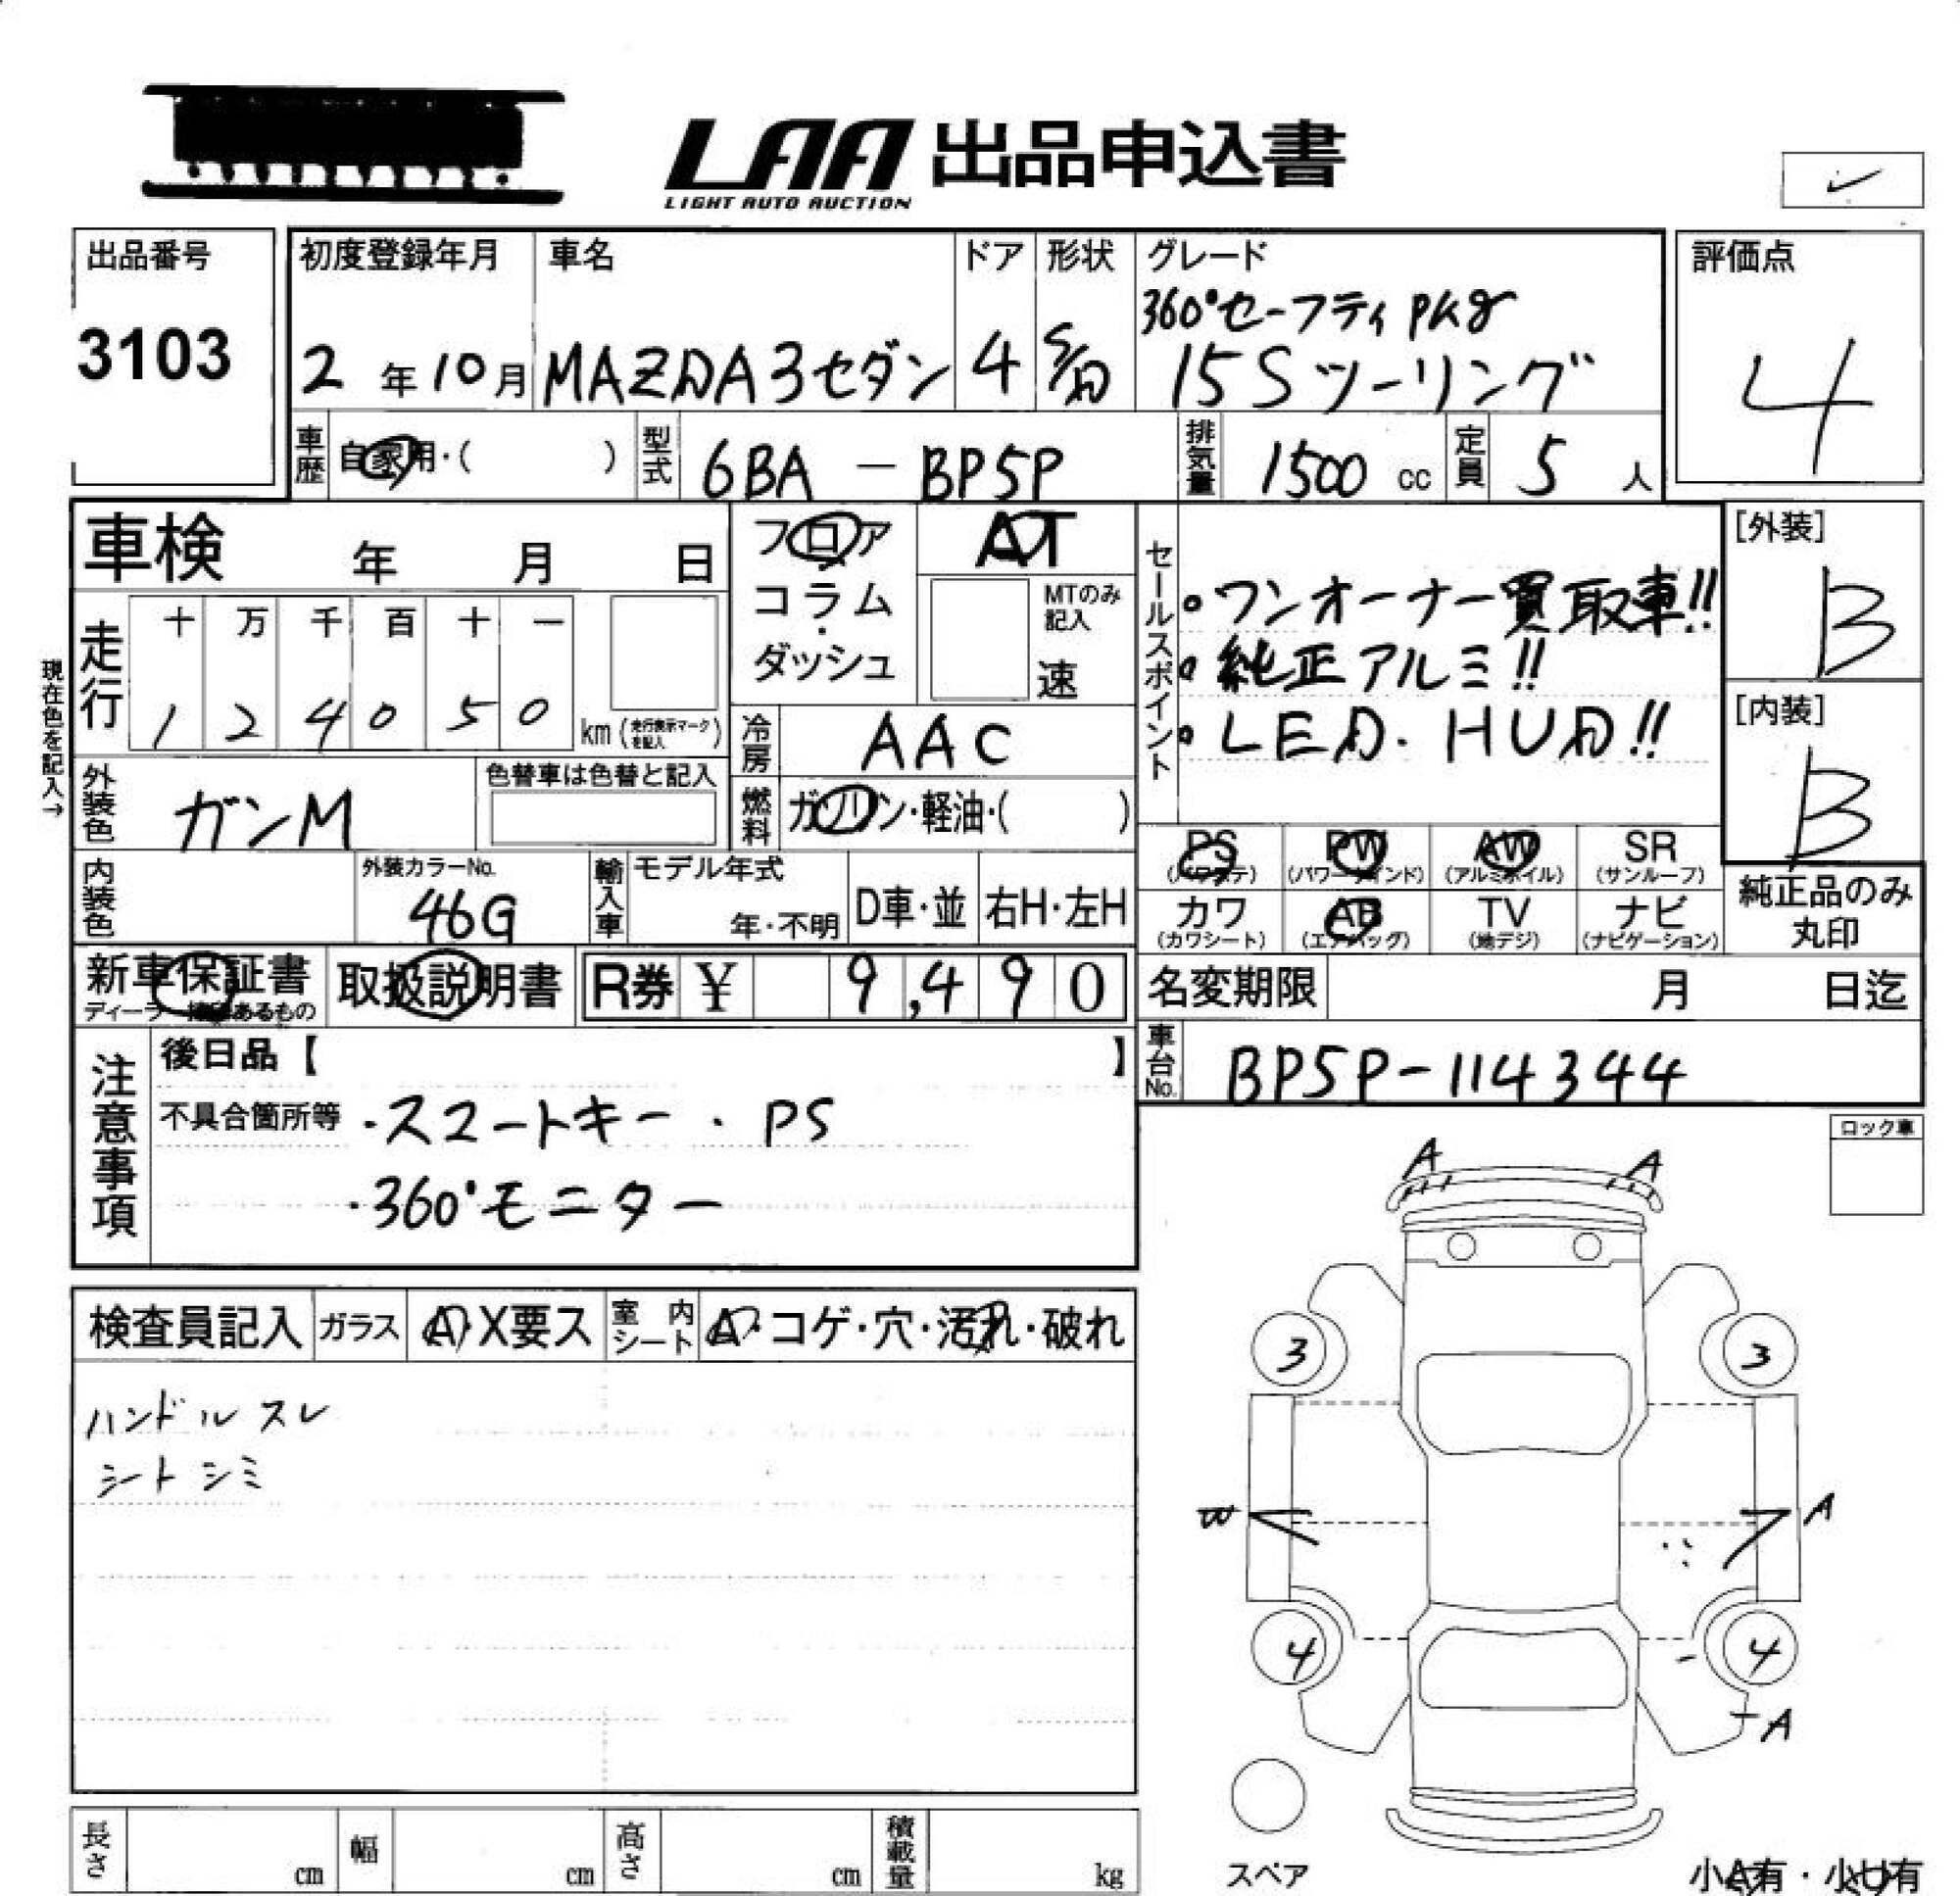 LAA 出品申込書
LIGHT AUTO AUCTION
出品番号
3103
初度登録年月
2年10月
車名
MAZDA3セダン
ドア
4
形状
グレード
360°セーフティPKg
15Sツーリング
評価点
4
車歴
自家用・( )
型式
6BA - BP5P
排気量
1500 cc
定員
5人
車検 年 月 日
フロア
コラム・
ダッシュ
AT
MTのみ
記入
速
セールスポイント
・ワンオーナー買取車!!
・純正アルミ!!
・LED. HUD!!
[外装]
B
[内装]
B
現在色を記入→
走行
十 万 千 百 十 一
1 2 4 0 5 0
km(走行表示マークを記入)
冷房
AAC
外装色
ガンM
色替車は色替と記入
燃料
ガソリン・軽油・( )
PS PW AW SR
(パワステ) (パワーウインド) (アルミホイル) (サンルーフ)
カワ AB TV ナビ
(カワシート) (エアバッグ) (地デジ) (ナビゲーション)
純正品のみ
丸印
内装色
外装カラーNo.
46G
輸入車
モデル年式
年・不明
D車・並
右H・左H
新車保証書
取扱説明書
R券 ¥ 9,490
名変期限 月 日迄
車台No.
BP5P-114344
注意事項
後日品【 】
不具合箇所等 ・スマートキー ・PS
・360°モニター
ロック車
検査員記入
ガラス
A・X要ス
室内シート
A・コゲ・穴・汚れ・破れ
ハンドルスレ
シートシミ
A A
3 3
W A
4 4
A
スペア
小A有・小U有
長さ cm
幅 cm
高さ cm
積載量 kg